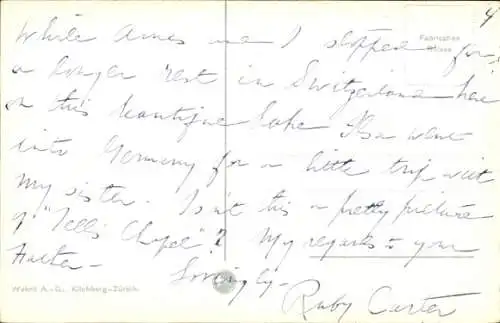 4
Fabrication Suisse
While Ames and I stopped for
a longer rest in Switzerland here
on this beautiful lake went
into Germany for a little trip with
my sister. Isn't this a pretty picture
of "Tell's Chapel"? My regards to your
Father - Lovingly -
Ruby Carter
Wehrli A.-G., Kilchberg-Zürich.